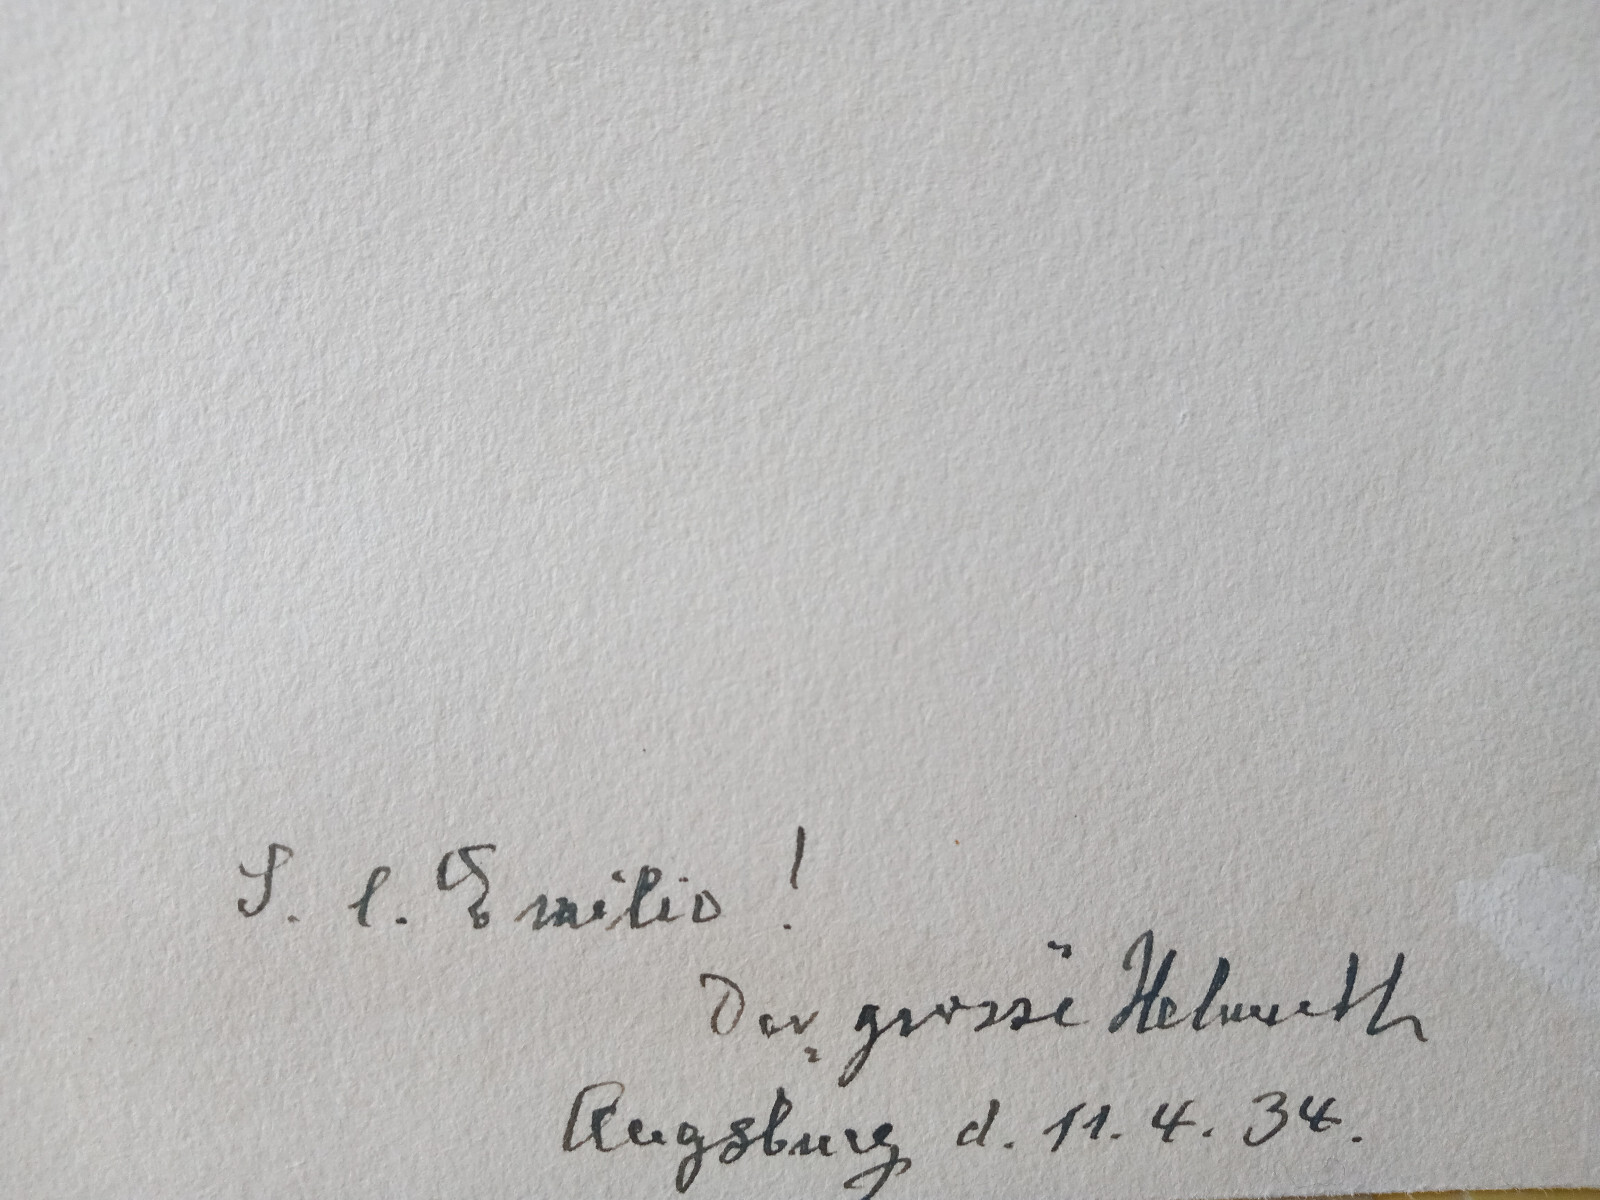 S. l. Emilio !
Der „grosse" Helmuth
Augsburg d. 11. 4. 34.